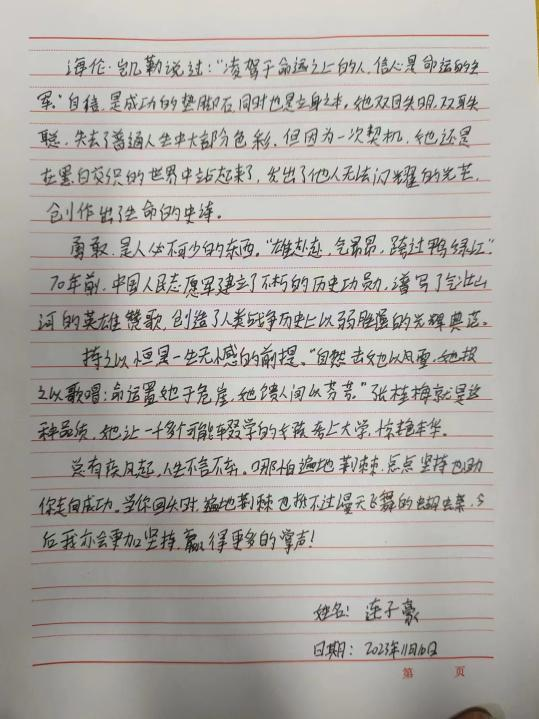 海伦·凯勒说过：“凌驾于命运之上的人，信心是命运的主
宰。”自信，是成功的垫脚石，同时也是立身之本。她双目失明，双耳失
聪，失去了普通人生中大部分色彩，但因为一次契机，她还是
在黑白交织的世界中站起来了，发出了他人无法闪耀的光芒，
创作出了生命的史诗。
勇敢，是人必不可少的东西。“雄赳赳，气昂昂，跨过鸭绿江”
70年前，中国人民志愿军建立了不朽的历史功勋，谱写了气壮山
河的英雄赞歌，创造了人类战争历史上以弱胜强的光辉典范。
持之以恒是一生无憾的前提。“自然击她以风雪，她报
之以歌唱；命运置她于危崖，她馈人间以芬芳。”张桂梅就是这
种品质，她让一千多个可能辍学的女孩考上大学，惊艳年华。
总有疾风起，人生不言不弃。哪怕遍地荆棘，点点坚持也助
你走向成功。当你回头时，遍地荆棘也挡不过漫天飞舞的蝴蝶，今
后我亦会更加坚持，赢得更多的掌声！
姓名：连子豪
日期：2023年11月10日
第 页